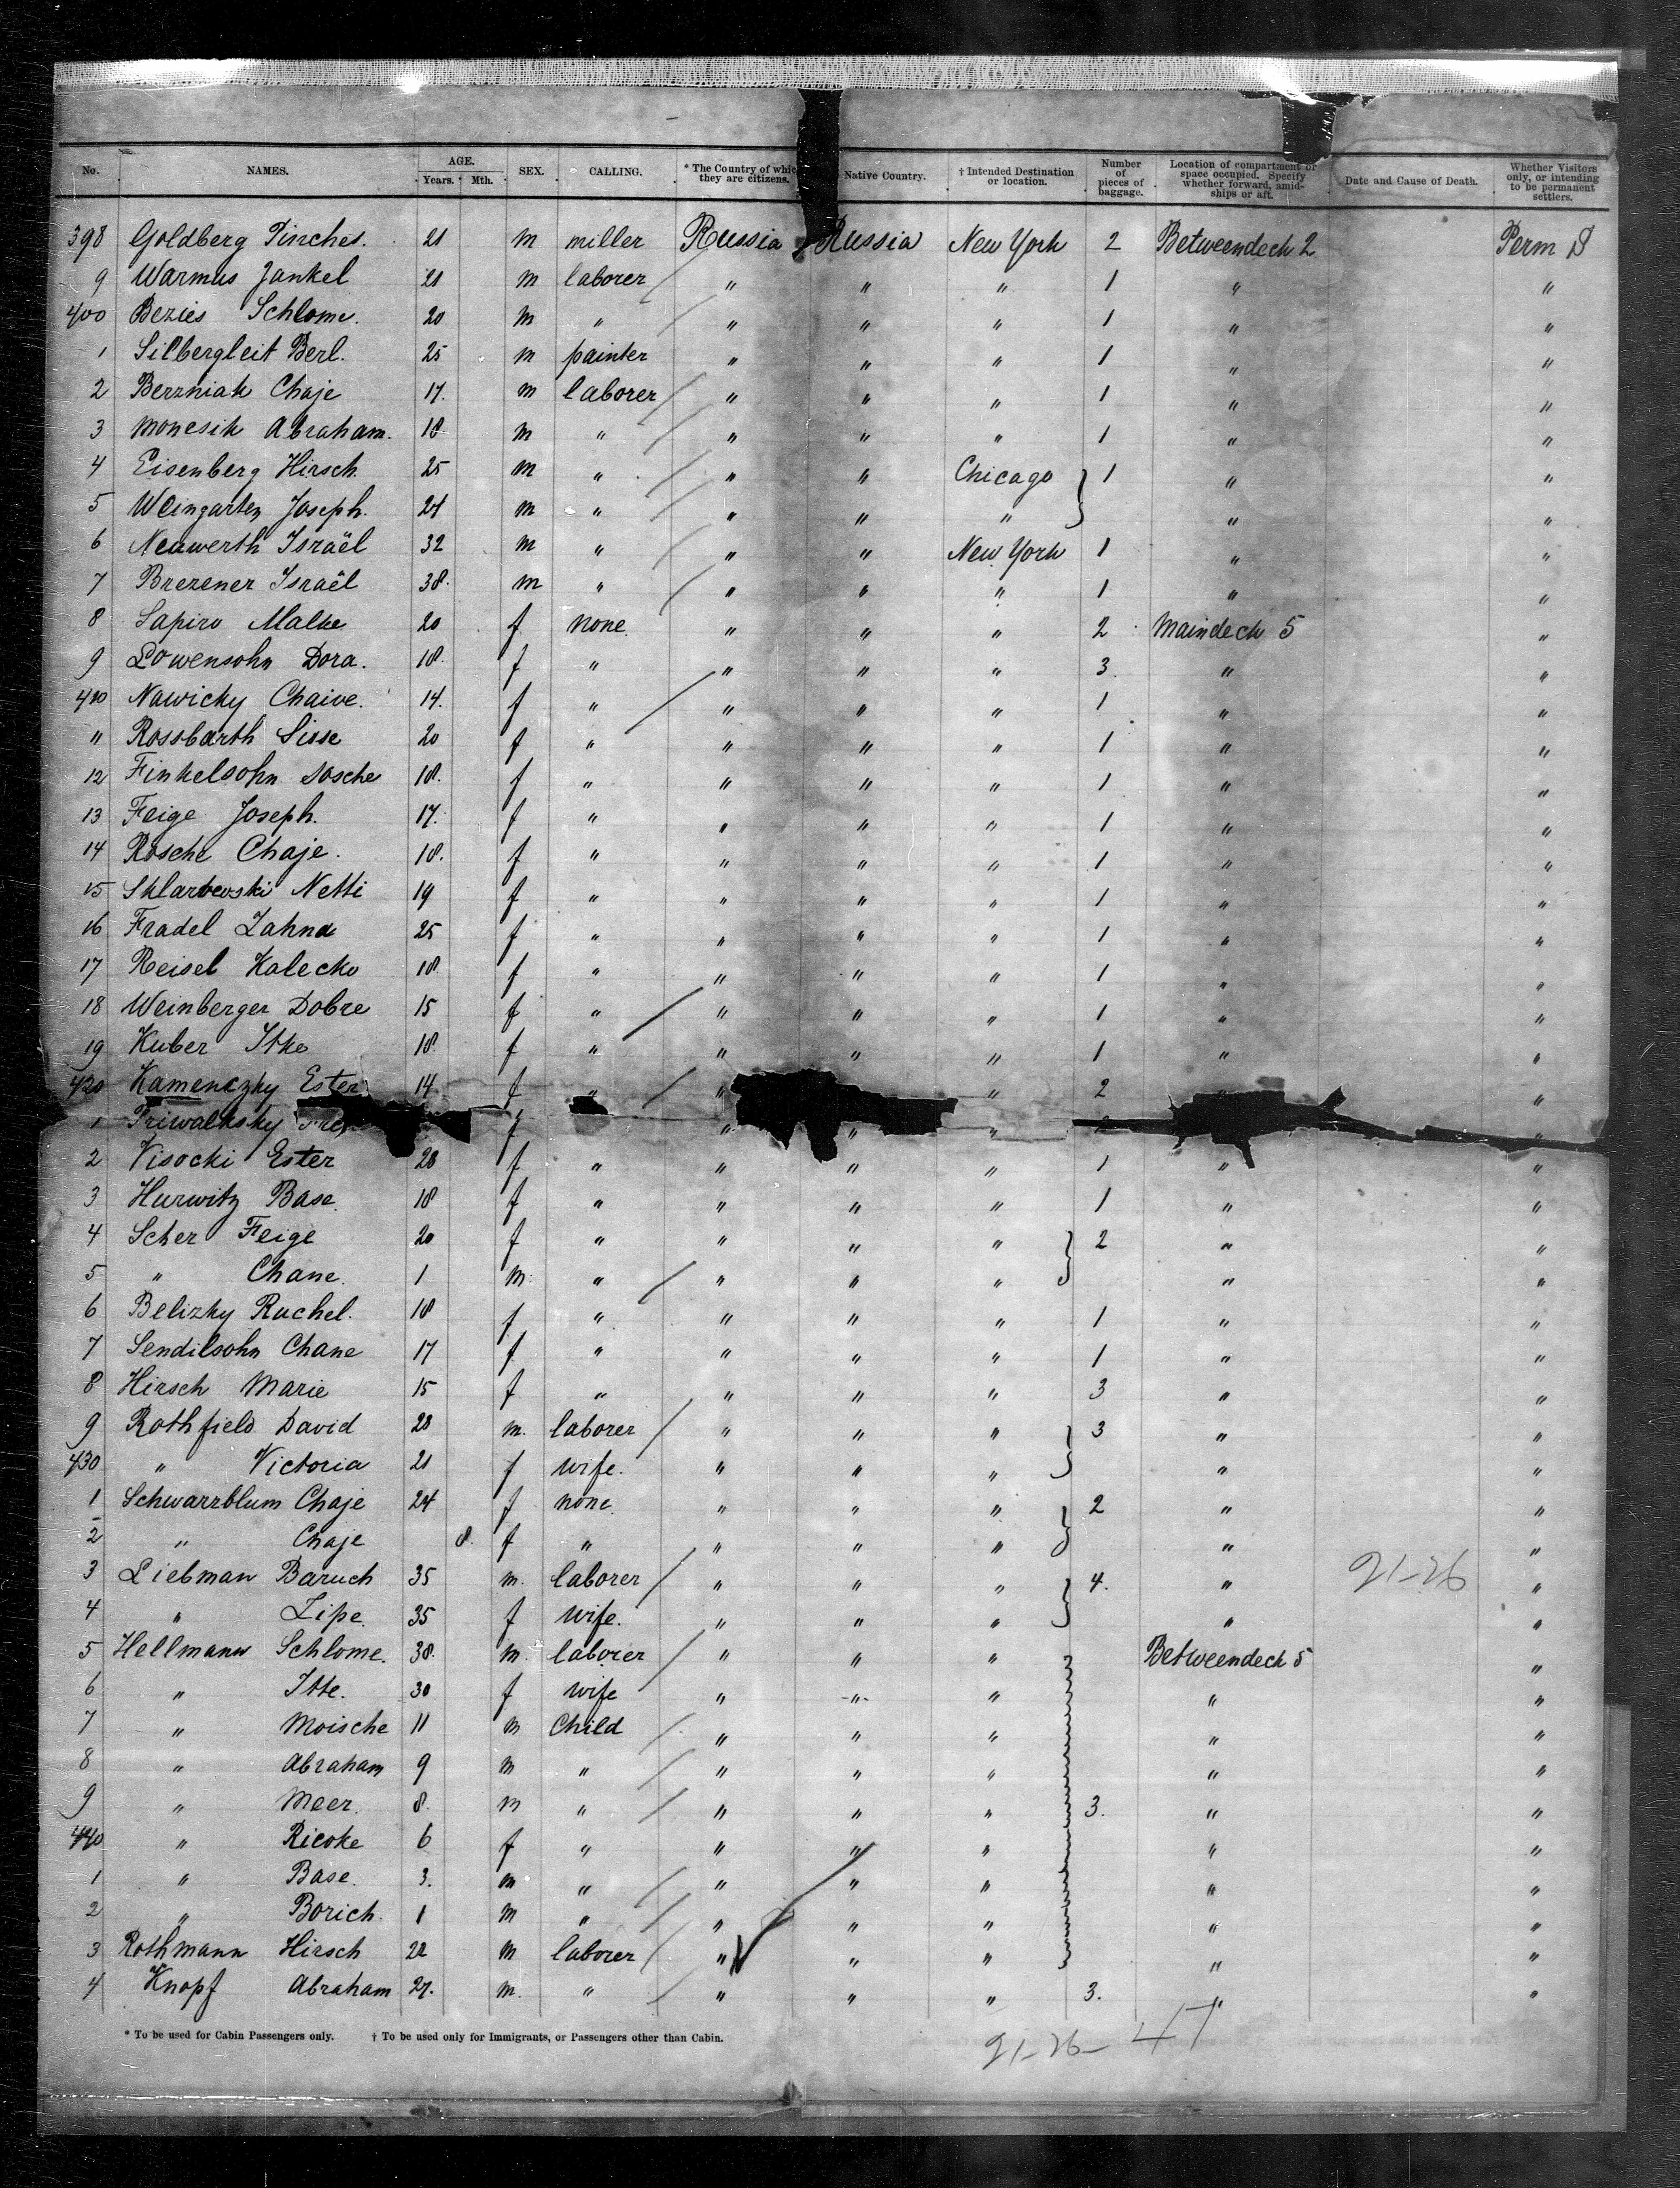 No. NAMES. AGE. Years. Mth. SEX. CALLING. * The Country of which they are citizens. Native Country. † Intended Destination or location. Number of pieces of baggage. Location of compartment or space occupied. Specify whether forward, amidships or aft. Date and Cause of Death. Whether Visitors only, or intending to be permanent settlers.
398 Goldberg Pinches. 21 m miller Russia Russia New York 2 Betweendeck 2 Perm S
9 Warmus Jankel 21 m laborer " " " 1 " "
400 Bezies Schlome. 20 m " " " " 1 " "
1 Silbergleit Berl. 25 m painter " " " 1 " "
2 Berzniak Chaje 17. m laborer " " " 1 " "
3 Monesik Abraham. 18 m " " " " 1 " "
4 Eisenberg Hirsch. 25 m " " " Chicago 1 " "
5 Weingarten Joseph. 24 m " " " " " "
6 Neuwerth Israël 32 m " " " New York 1 " "
7 Brezener Israël 38. m " " " " 1 " "
8 Sapiro Malke 20 f none. " " " 2 Maindeck 5 "
9 Lowensohn Dora. 18. f " " " " 3. " "
410 Nawicky Chaive. 14. f " " " " 1 " "
11 Rossbarth Sisse 20 f " " " " 1 " "
12 Finkelsohn Dosche 18. f " " " " 1 " "
13 Feige Joseph. 17. f " " " " 1 " "
14 Rosche Chaje. 18. f " " " " 1 " "
15 Sklarbewski Netti 19 f " " " " 1 " "
16 Fradel Zahna 25 f " " " " 1 " "
17 Reisel Kalecko 18. f " " " " 1 " "
18 Weinberger Dobre 15 f " " " " 1 " "
19 Kuber Itke 18. f " " " " 1 " "
420 Kamenczky Ester 14 f " " " 2 " "
1 Priwalksky f " " " "
2 Visocki Ester 28 f " " " " 1 " "
3 Hurwitz Base. 18 f " " " " 1 " "
4 Scher Feige 20 f " " " " 2 " "
5 " Chane. 1 m. " " " " " "
6 Belizky Rachel. 18 f " " " " 1 " "
7 Sendilsohn Chane 17 f " " " " 1 " "
8 Hirsch Marie 15 f " " " " 3 " "
9 Rothfield David 28 m. laborer " " " 3 " "
430 " Victoria 21 f wife. " " " " "
1 Schwarzblum Chaje 24 f none. " " " 2 " "
2 " Chaje 8. f " " " " " "
3 Liebman Baruch 35 m. laborer " " " 4. " 21-26 "
4 " Zipe. 35 f wife. " " " " "
5 Hellmann Schlome. 38. m. laborer " " " Betweendeck 5 "
6 " Itte. 30 f wife " " " " "
7 " Moische 11 m Child " " " " "
8 " Abraham 9 m " " " " " "
9 " Meer. 8. m " " " " 3. " "
440 " Ricoke 6 f " " " " " "
1 " Base. 3. m " " " " " "
2 " Borich. 1 m " " " " " "
3 Rothmann Hirsch 22 m laborer " " " " "
4 Knopf Abraham 27. m. " " " " 3. " "
* To be used for Cabin Passengers only. † To be used only for Immigrants, or Passengers other than Cabin.
21-26- 47